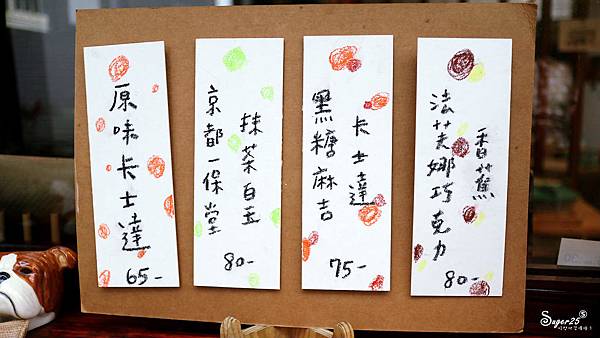 原味卡士達
65-
京都一保堂
抹茶白玉
80-
黑糖麻吉
卡士達
75-
法芙娜巧克力
香蕉
80-
Super25